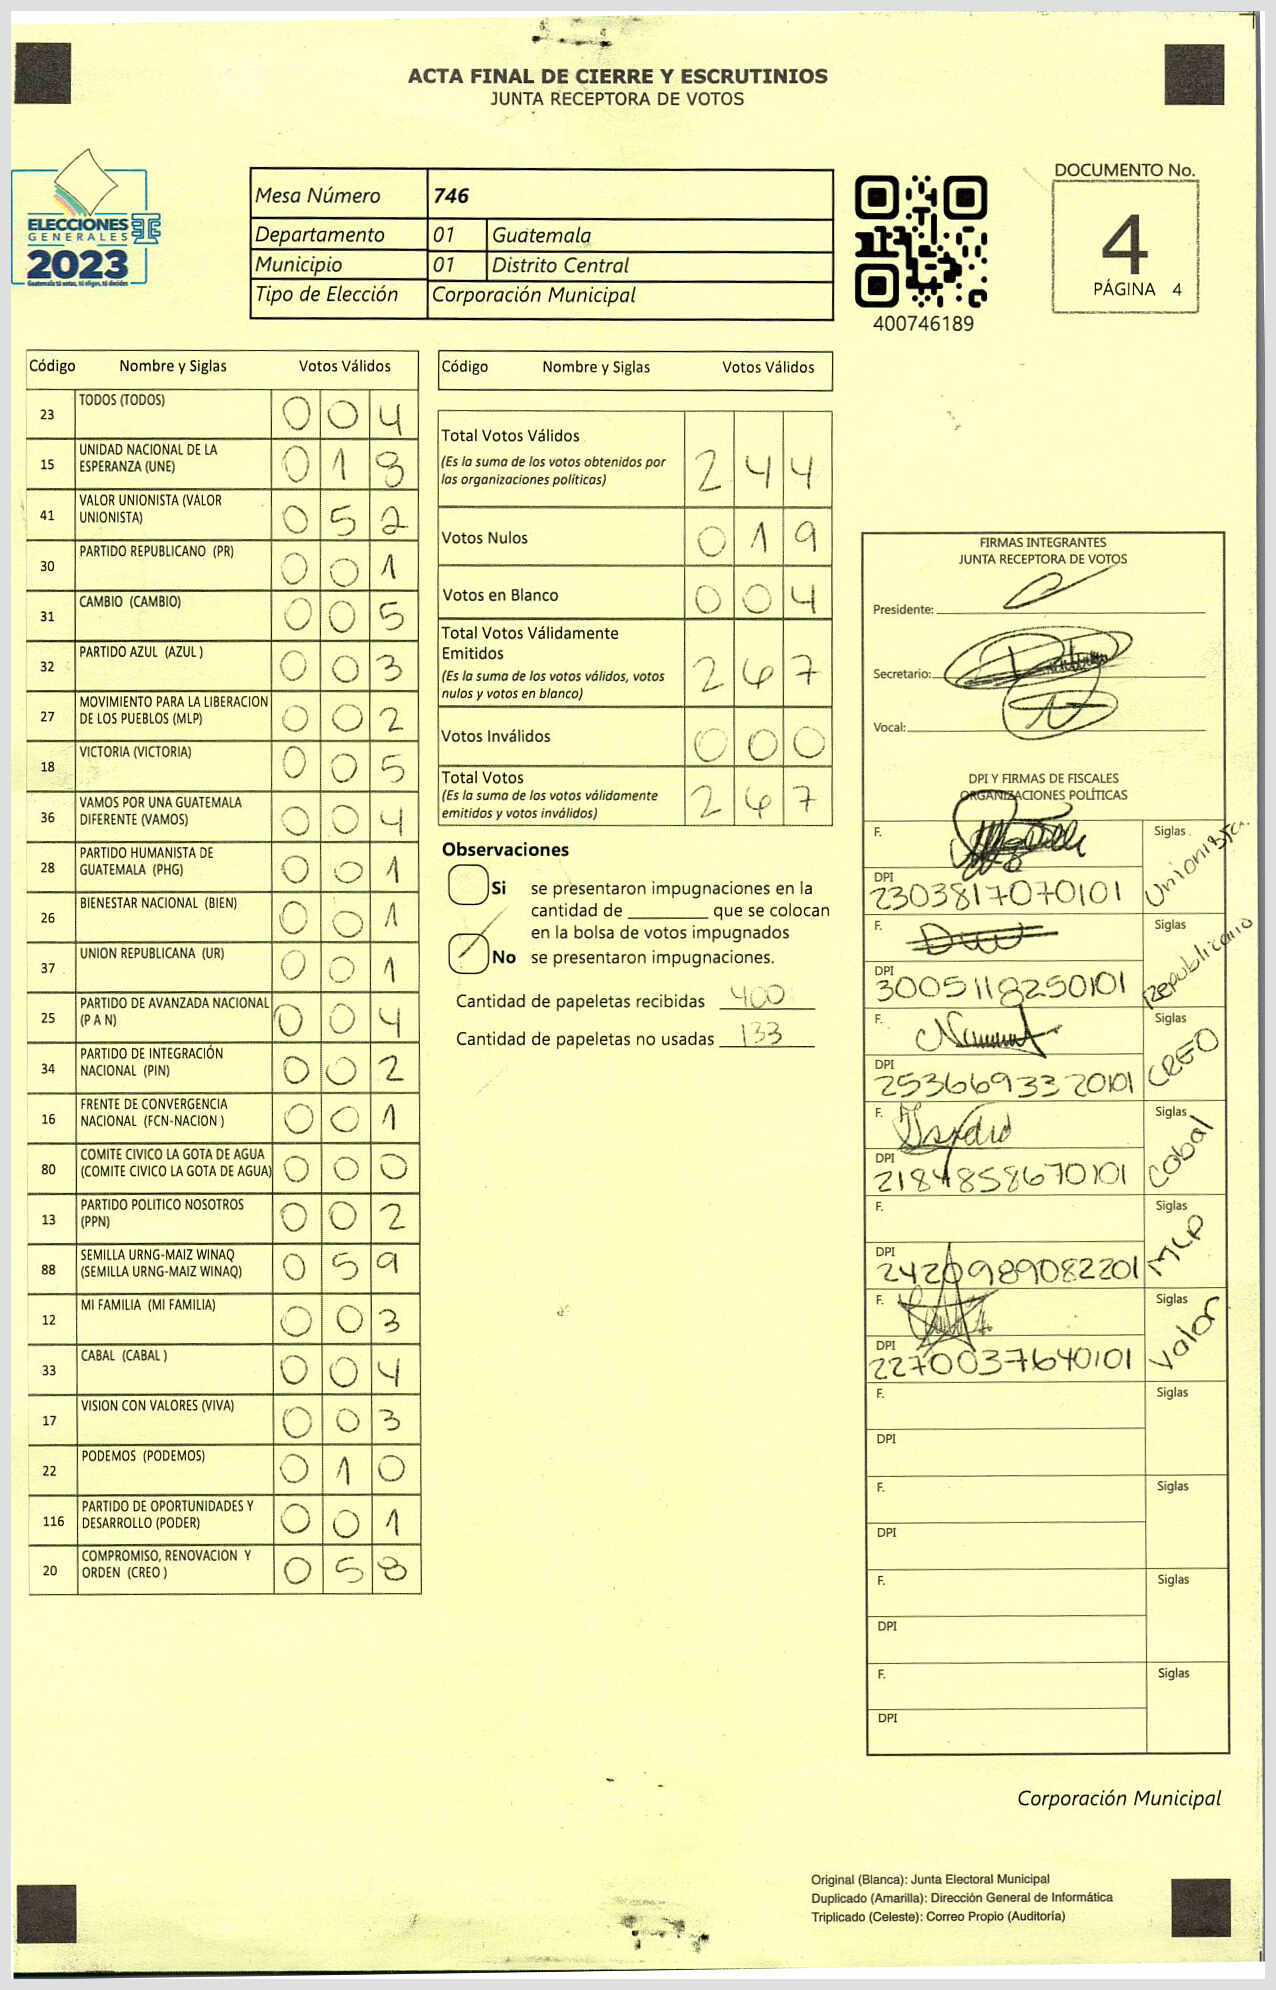 ACTA FINAL DE CIERRE Y ESCRUTINIOS
JUNTA RECEPTORA DE VOTOS
ELECCIONES
GENERALES
2023
Guatemala tú votas, tú eliges, tú decides
Mesa Número 746
Departamento 01 Guatemala
Municipio 01 Distrito Central
Tipo de Elección Corporación Municipal
400746189
DOCUMENTO No.
4
PÁGINA 4
Código Nombre y Siglas Votos Válidos
23 TODOS (TODOS) 0 0 4
15 UNIDAD NACIONAL DE LA
ESPERANZA (UNE) 0 1 8
41 VALOR UNIONISTA (VALOR
UNIONISTA) 0 5 2
30 PARTIDO REPUBLICANO (PR) 0 0 1
31 CAMBIO (CAMBIO) 0 0 5
32 PARTIDO AZUL (AZUL ) 0 0 3
27 MOVIMIENTO PARA LA LIBERACION
DE LOS PUEBLOS (MLP) 0 0 2
18 VICTORIA (VICTORIA) 0 0 5
36 VAMOS POR UNA GUATEMALA
DIFERENTE (VAMOS) 0 0 4
28 PARTIDO HUMANISTA DE
GUATEMALA (PHG) 0 0 1
26 BIENESTAR NACIONAL (BIEN) 0 0 1
37 UNION REPUBLICANA (UR) 0 0 1
25 PARTIDO DE AVANZADA NACIONAL
(P A N) 0 0 4
34 PARTIDO DE INTEGRACIÓN
NACIONAL (PIN) 0 0 2
16 FRENTE DE CONVERGENCIA
NACIONAL (FCN-NACION ) 0 0 1
80 COMITE CIVICO LA GOTA DE AGUA
(COMITE CIVICO LA GOTA DE AGUA) 0 0 0
13 PARTIDO POLITICO NOSOTROS
(PPN) 0 0 2
88 SEMILLA URNG-MAIZ WINAQ
(SEMILLA URNG-MAIZ WINAQ) 0 5 9
12 MI FAMILIA (MI FAMILIA) 0 0 3
33 CABAL (CABAL ) 0 0 4
17 VISION CON VALORES (VIVA) 0 0 3
22 PODEMOS (PODEMOS) 0 1 0
116 PARTIDO DE OPORTUNIDADES Y
DESARROLLO (PODER) 0 0 1
20 COMPROMISO, RENOVACION Y
ORDEN (CREO ) 0 5 8
Código Nombre y Siglas Votos Válidos
Total Votos Válidos
(Es la suma de los votos obtenidos por
las organizaciones políticas) 2 4 4
Votos Nulos 0 1 9
Votos en Blanco 0 0 4
Total Votos Válidamente
Emitidos
(Es la suma de los votos válidos, votos
nulos y votos en blanco) 2 6 7
Votos Inválidos 0 0 0
Total Votos
(Es la suma de los votos válidamente
emitidos y votos inválidos) 2 6 7
Observaciones
Si se presentaron impugnaciones en la
cantidad de ________ que se colocan
en la bolsa de votos impugnados
No se presentaron impugnaciones.
Cantidad de papeletas recibidas 400
Cantidad de papeletas no usadas 133
FIRMAS INTEGRANTES
JUNTA RECEPTORA DE VOTOS
Presidente:
Secretario:
Vocal:
DPI Y FIRMAS DE FISCALES
ORGANIZACIONES POLÍTICAS
F. Siglas Unionista
DPI 2303817070101
F. Siglas Republicano
DPI 3005118250101
F. Siglas CREO
DPI 2536693320101
F. Siglas Cobal
DPI 2184858670101
F. Siglas MLP
DPI 2420989082201
F. Siglas Valor
DPI 2270037640101
F. Siglas
DPI
F. Siglas
DPI
F. Siglas
DPI
F. Siglas
DPI
Corporación Municipal
Original (Blanca): Junta Electoral Municipal
Duplicado (Amarilla): Dirección General de Informática
Triplicado (Celeste): Correo Propio (Auditoría)